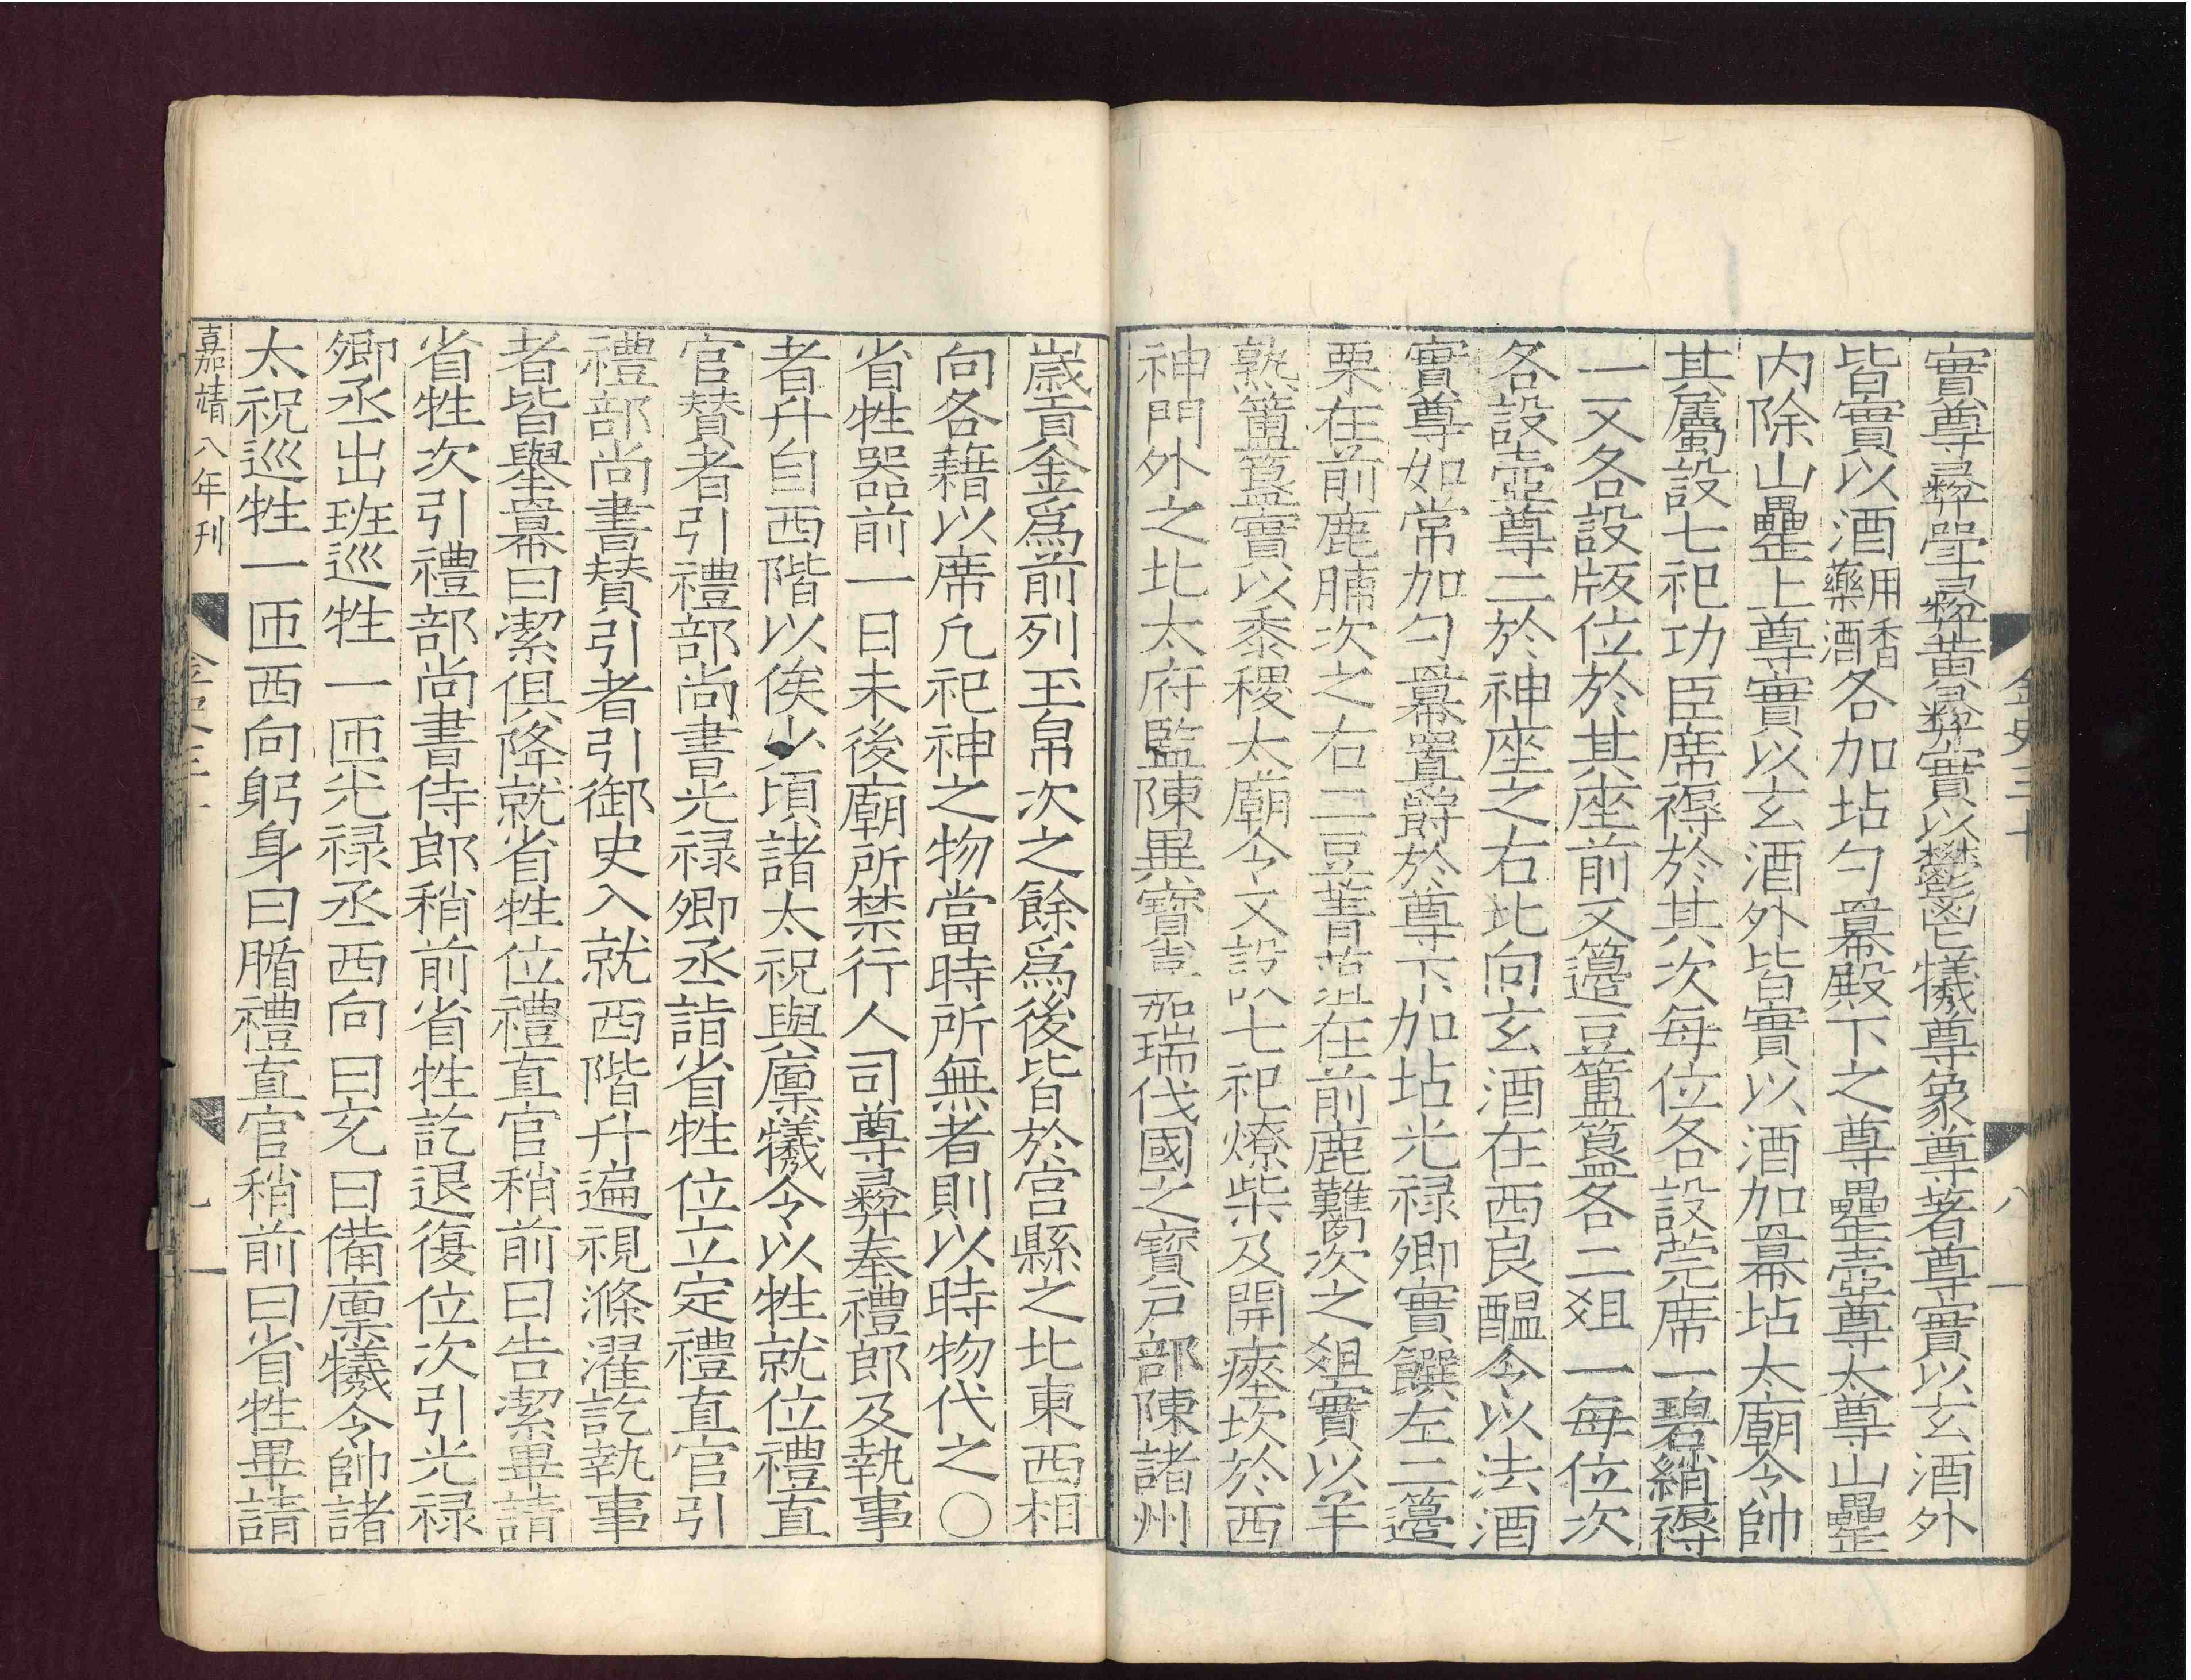 實尊彞斝彞黄彞實以鬱鬯犧尊象尊著尊實以玄酒外
皆實以酒用香藥酒各加坫勺冪殿下之尊罍壺尊太尊山罍
内除山罍上尊實以玄酒外皆實以酒加冪坫太廟令帥
其屬設七祀功臣席褥於其次每位各設莞席一碧綃褥
一又各設版位於其座前又籩豆簠簋各二俎一每位次
各設壺尊二於神座之右北向玄酒在西良醖令以法酒
實尊如常加勺冪置爵於尊下加坫光禄卿實饌左二籩
栗在前鹿脯次之右二豆菁菹在前鹿臡次之俎實以羊
熟簠簋實以黍稷太廟令又設七祀燎柴及開瘞坎於西
神門外之北太府監陳異寶嘉瑞伐國之寶户部陳諸州
金史三十
八
歲貢金爲前列玉帛次之餘爲後皆於宫縣之北東西相
向各藉以席凡祀神之物當時所無者則以時物代之○
省牲器前一日未後廟所禁行人司尊彞奉禮郎及執事
者升自西階以俟少頃諸太祝與廩犧令以牲就位禮直
官賛者引禮部尚書光禄卿丞詣省牲位立定禮直官引
禮部尚書賛引者引御史入就西階升遍視滌濯訖執事
者皆舉冪曰潔俱降就省牲位禮直官稍前曰告潔畢請
省牲次引禮部尚書侍郎稍前省牲訖退復位次引光禄
卿丞出班巡牲一匝光禄丞西向曰充曰備廩犧令帥諸
太祝巡牲一匝西向躬身曰腯禮直官稍前曰省牲畢請
嘉靖八年刊